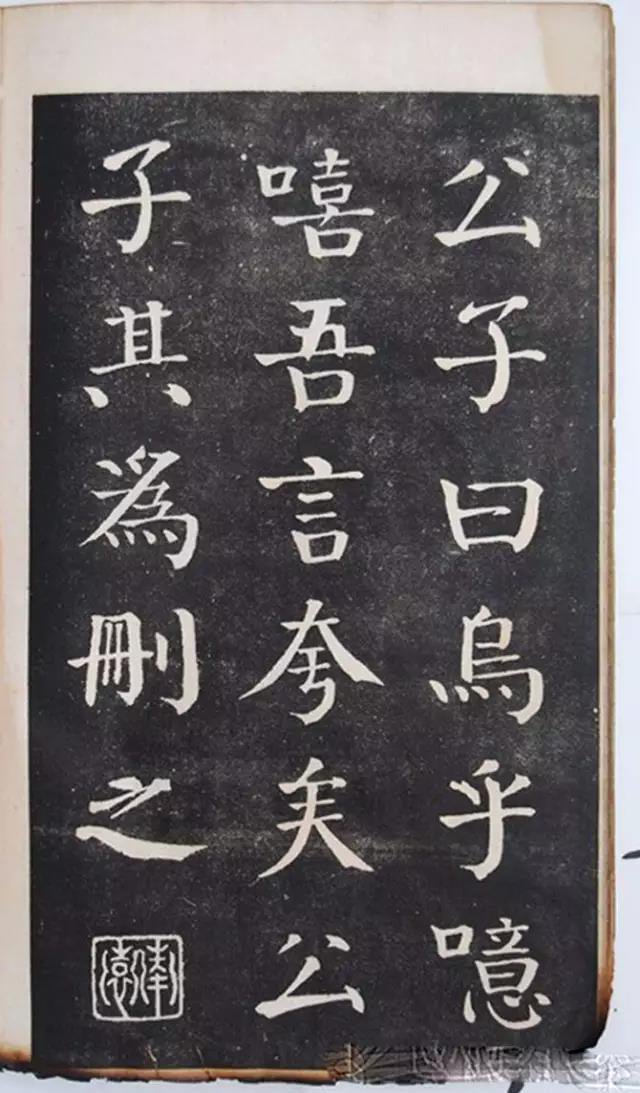 公子曰烏乎噫
嘻吾言夸矣公
子其為刪之